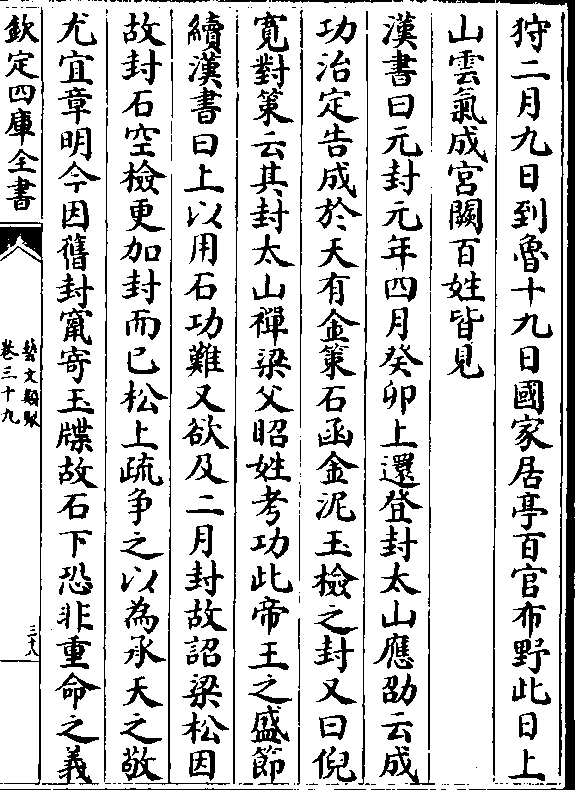 狩二月九日到魯十九日國家居亭百官布野此日上
山雲氣成宮闕百姓皆見
漢書曰元封元年四月癸卯上還登封太山應劭云成
功治定告成於天有金策石函金泥玉檢之封又曰倪
寛對策云其封太山禪梁父昭姓考功此帝王之盛節
續漢書曰上以用石功難又欲及二月封故詔梁松因
故封石空檢更加封而已松上疏争之以為承天之敬
尤宜章明今因舊封竄寄玉牒故石下恐非重命之義
欽定四庫全書
藝文類聚
卷三十九
三十八